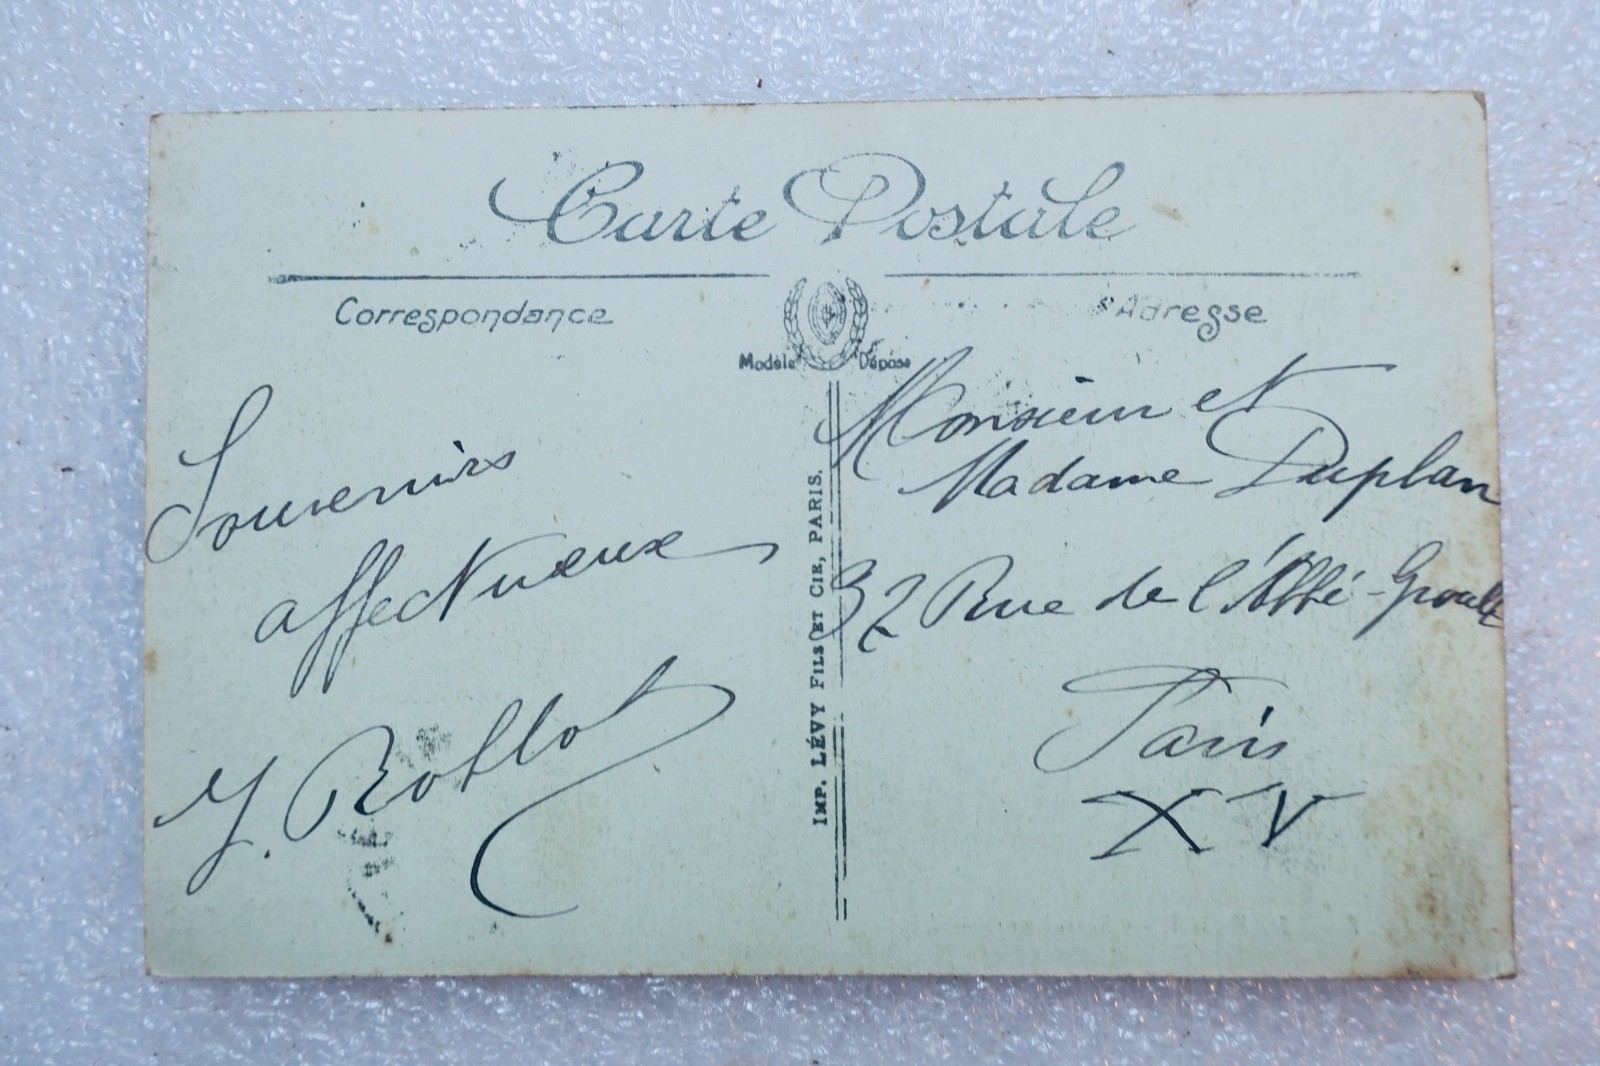 Carte Postale
Correspondance
Adresse
Modèle Déposé
Souvenirs
affectueux
Y. Rollot
IMP. LÉVY FILS ET CIE, PARIS.
Monsieur et
Madame Duplan
32 Rue de l'Abbé-Groult
Paris
XV